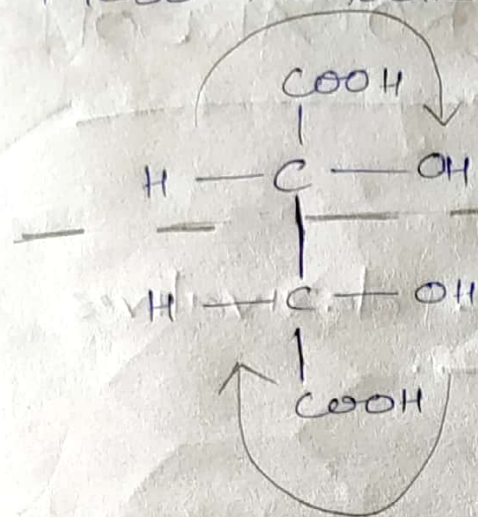 COOH
H — C — OH
H — C — OH
COOH